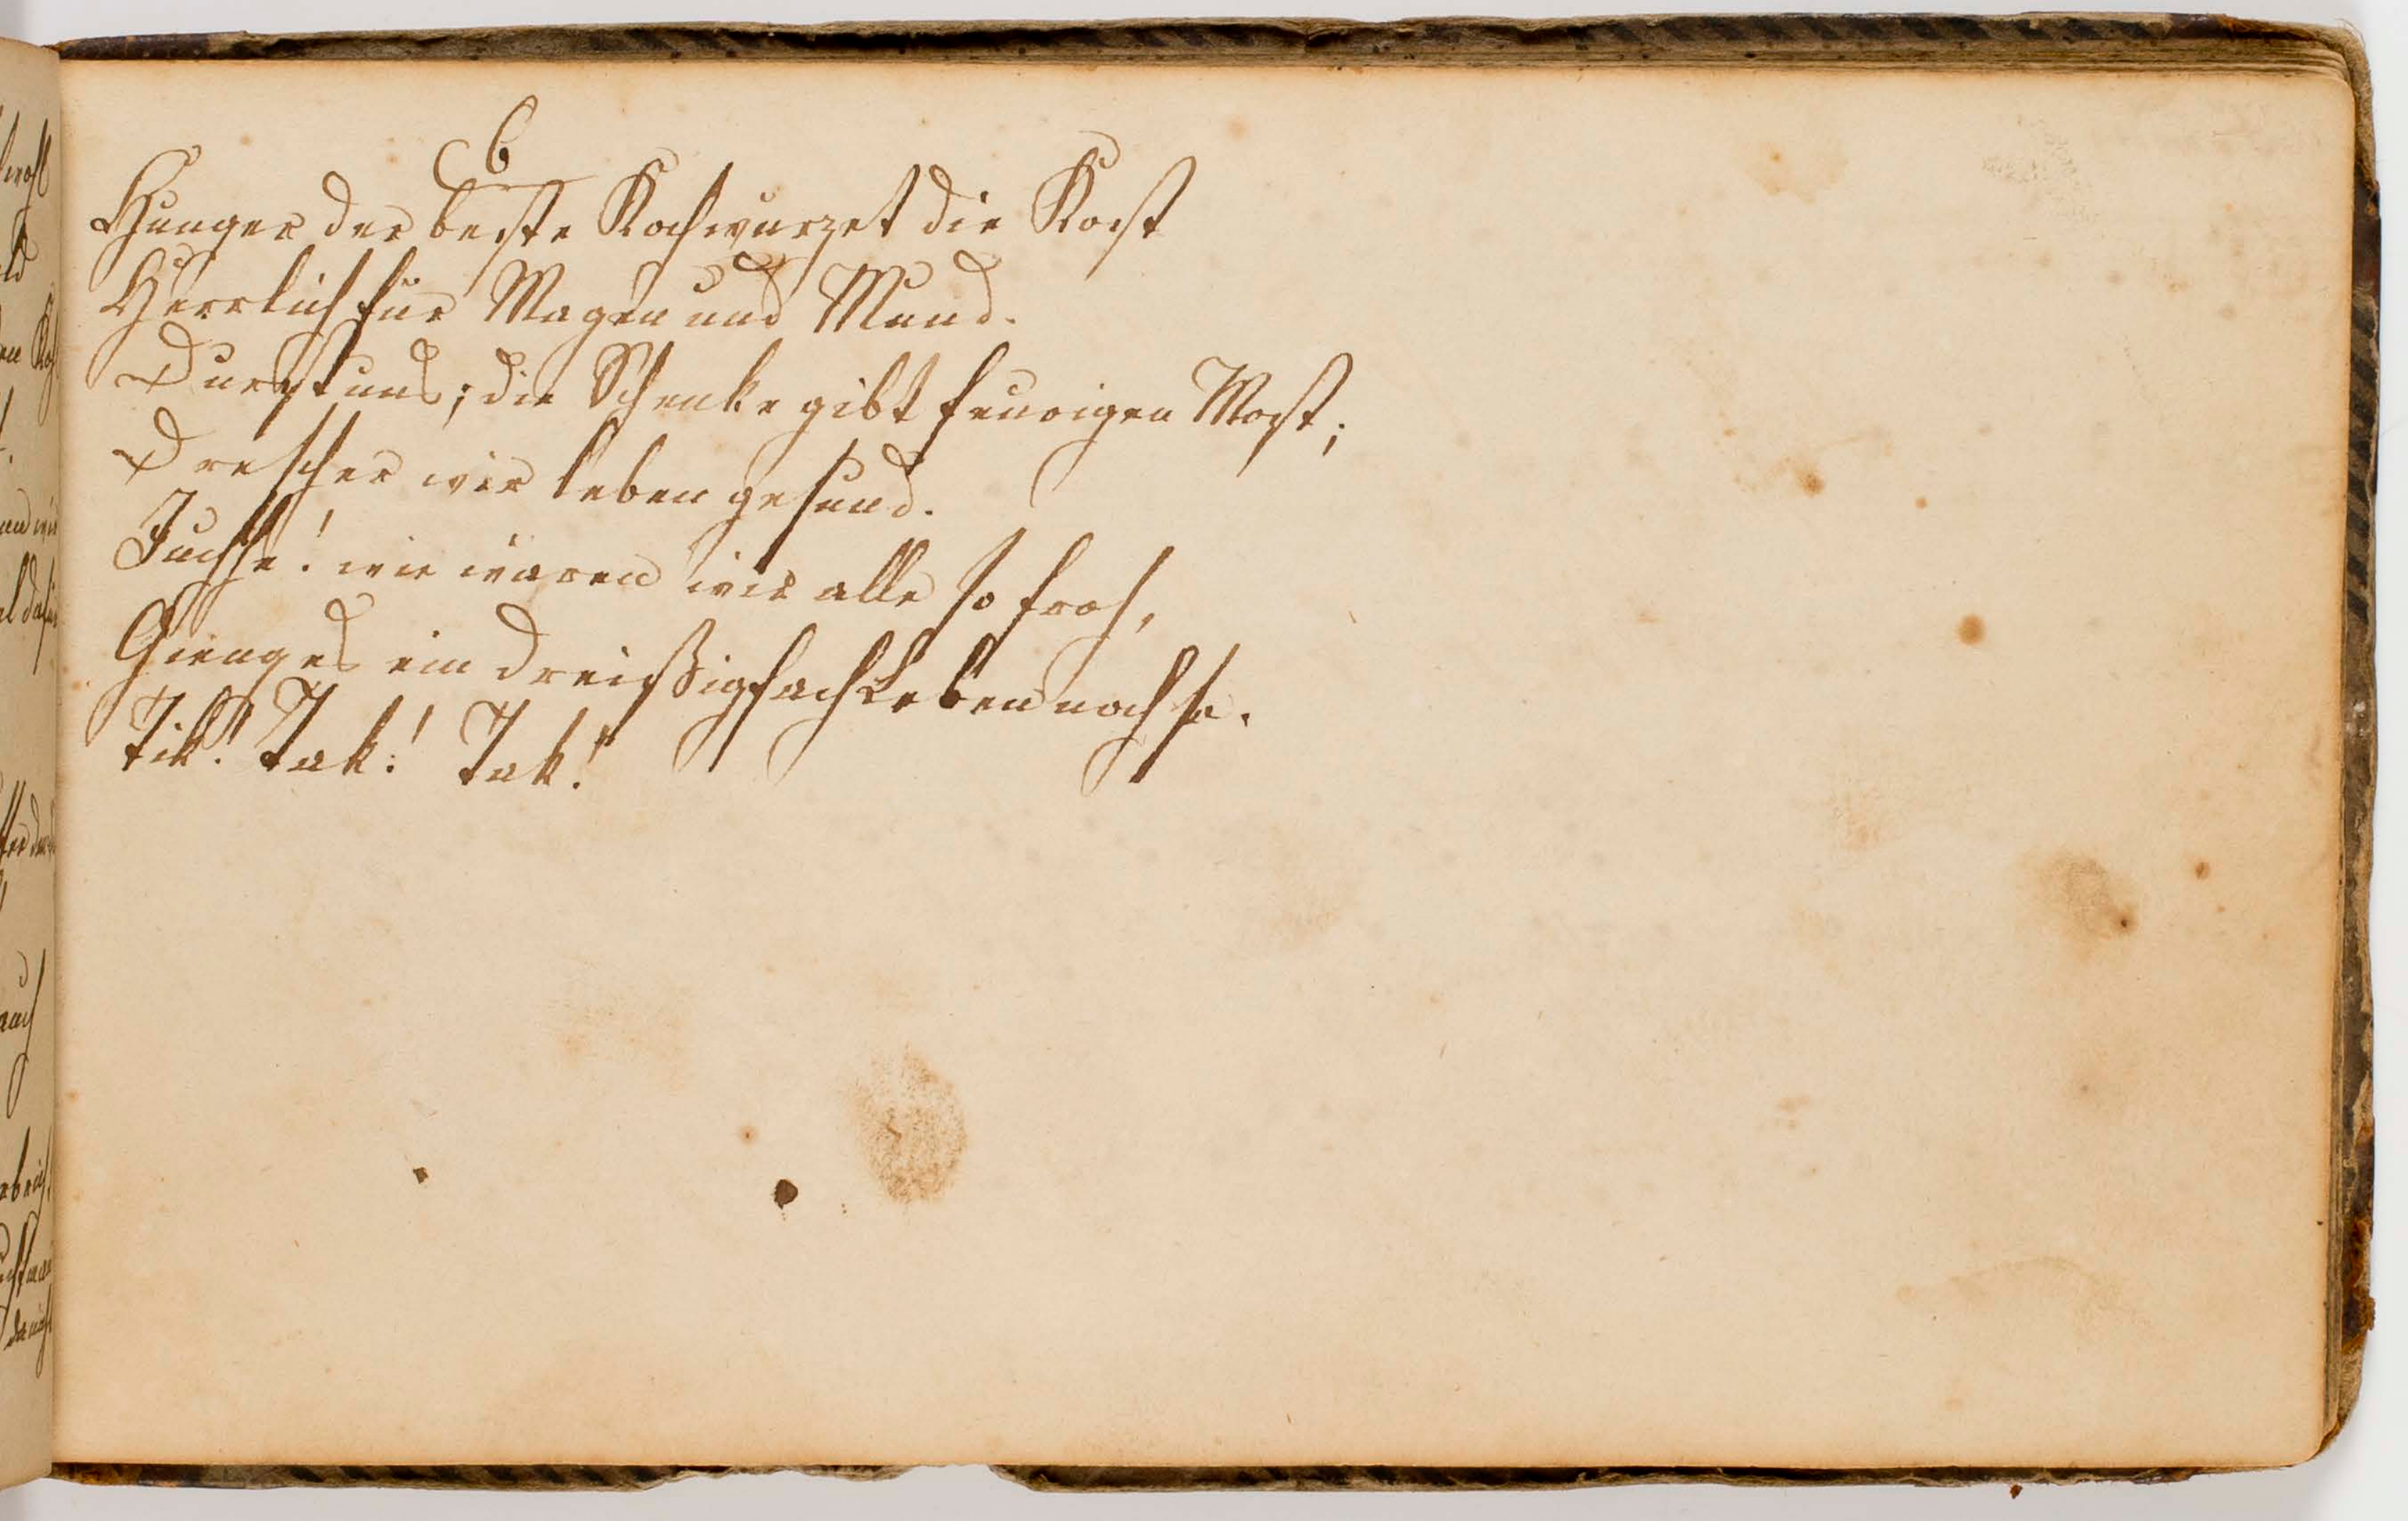 6
Hunger der beste Koch wurzet die Kost
Herrlich für Magen und Mund.
Durst uns; die Schenke gibt feurigen Most;
Drescher wir leben gesund.
Juchhe! wie waren wir alle so froh,
Gienges ein dreißigfach Leben noch so.
Tik! Tak! Tak!